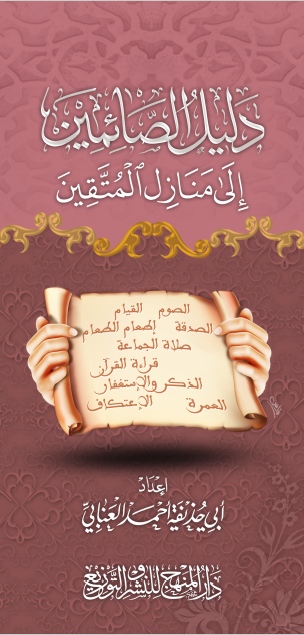 دَلِيلُ الصَّائِمِينَ
إِلَى مَنَازِلِ الْمُتَّقِينَ
الصوم القيام
الصدقة إطعام الطعام
صلاة الجماعة
قراءة القرآن
الذكر والإستغفار
العمرة الإعتكاف
إعداد
أبي حذيفة أحمد العنابي
دار المنهج للنشر والتوزيع